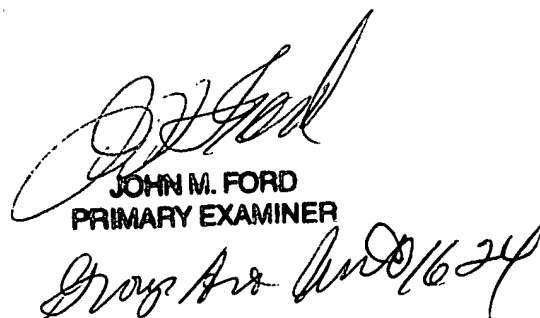 JOHN M. FORD
PRIMARY EXAMINER
Group Art Unit 1624